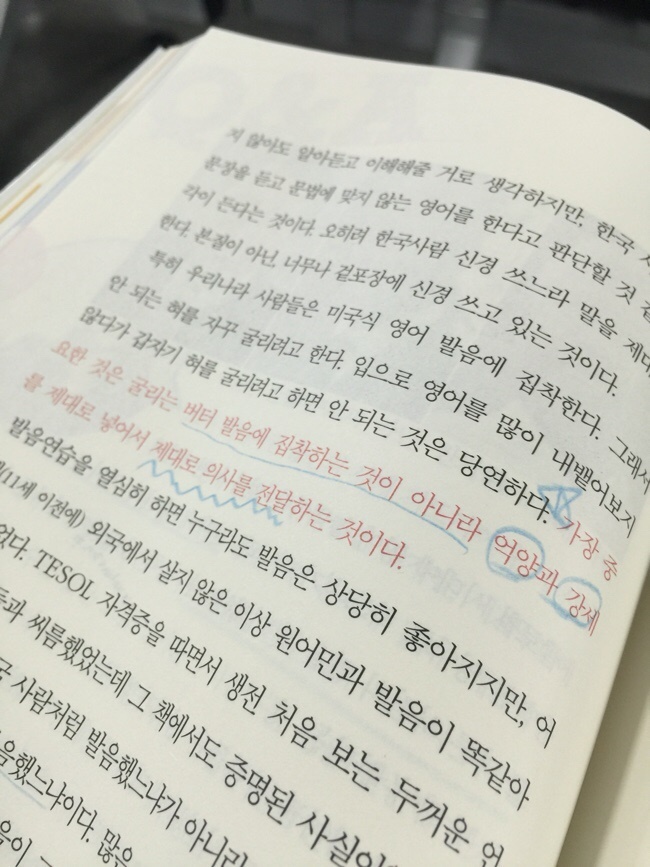 지 않아도 알아듣고 이해해줄 거로 생각하지만, 한국
문장을 듣고 문법에 맞지 않는 영어를 한다고 판단할 것
각이 든다는 것이다. 오히려 한국사람 신경 쓰느라 말을
한다. 본질이 아닌, 너무나 겉포장에 신경 쓰고 있는 것이다.
특히 우리나라 사람들은 미국식 영어 발음에 집착한다. 그래서
안 되는 혀를 자꾸 굴리려고 한다. 입으로 영어를 많이 내뱉어보지
않다가 갑자기 혀를 굴리려고 하면 안 되는 것은 당연하다. 가장 중
요한 것은 굴리는 버터 발음에 집착하는 것이 아니라 억양과 강세
를 제대로 넣어서 제대로 의사를 전달하는 것이다.
발음연습을 열심히 하면 누구라도 발음은 상당히 좋아지지만, 어
(11세 이전에) 외국에서 살지 않은 이상 원어민과 발음이 똑같아
TESOL 자격증을 따면서 생전 처음 보는 두꺼운
씨름했었는데 그 책에서도 증명된
사람처럼 발음했느냐가 아니라
했느냐이다. 많은